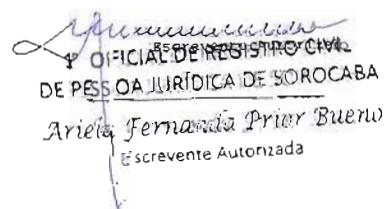 1º OFICIAL DE REGISTRO CIVIL
DE PESSOA JURÍDICA DE SOROCABA
Ariela Fernanda Prior Bueno
Escrevente Autorizada